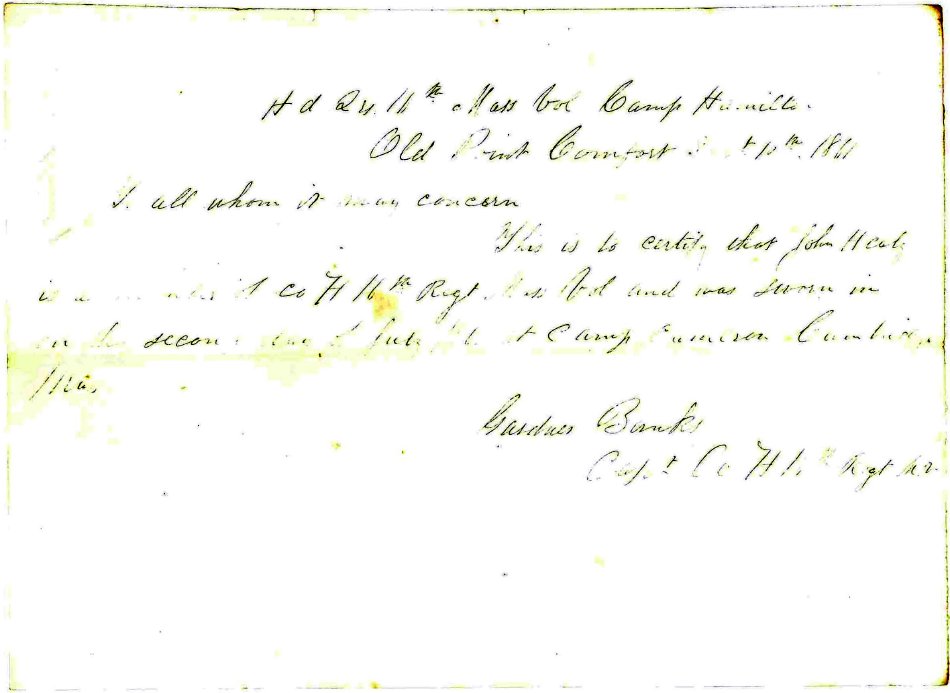 Hd Qrs 16th Mass Vol Camp Hamilton
Old Point Comfort 10th 1861
To all whom it may concern
This is to certify that John Healy
is a member of Co H 16th Regt Mass Vol and was sworn in
on the second day of July at Camp Cameron Cambridge
Mass
Gardner Banks
Capt Co H 16th Regt M V